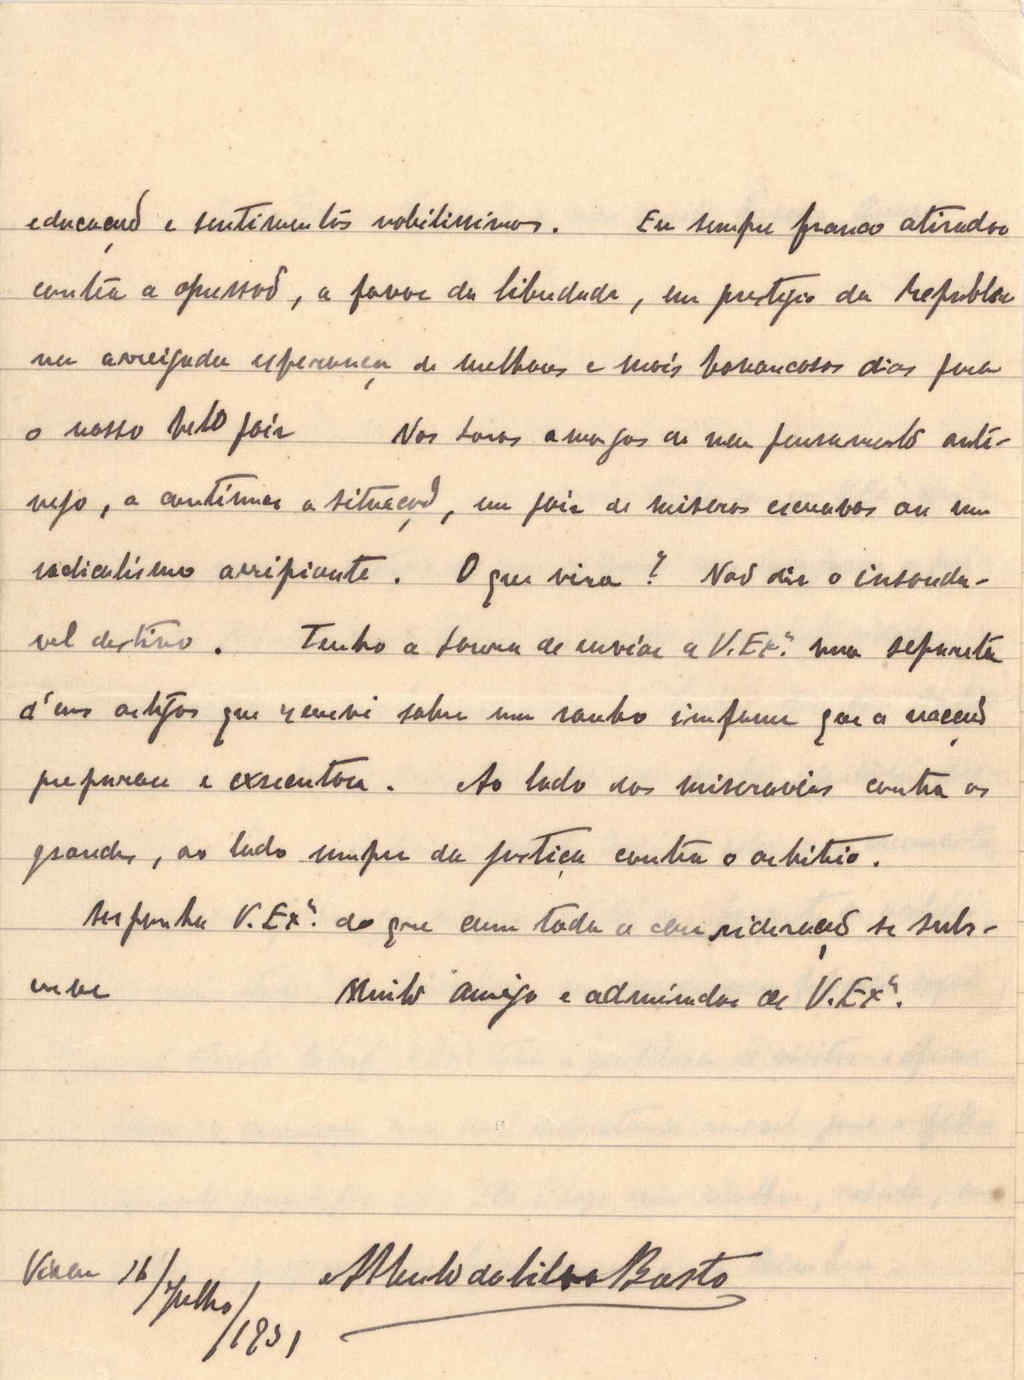 educação e sentimentos nobilissimos. Eu sempre franco atirador
contra a opressão, a favor da liberdade, em prestigio da Republica
na arreigada esperança de melhores e mais bonançosos dias para
o nosso belo paiz Nas horas amargas de meu pensamento ante-
vejo, a continuar a situação, um paiz de miseros escravos ou um
radicalismo arripiante. O que vira? Não diz o insonda-
vel destino. Tenho a honra de enviar a V. Exª. uma separata
d'uns artigos que escrevi sobre um roubo infame que a nação
preparou e executou. Ao lado dos miseraveis contra os
grandes, ao lado sempre da justiça contra o arbitrio.
Disponha V. Exª. do que com toda a consideração se subs-
creve Muito amigo e admirador de V. Exª.
Viseu 16/Julho/1931 Alberto da Silva Basto